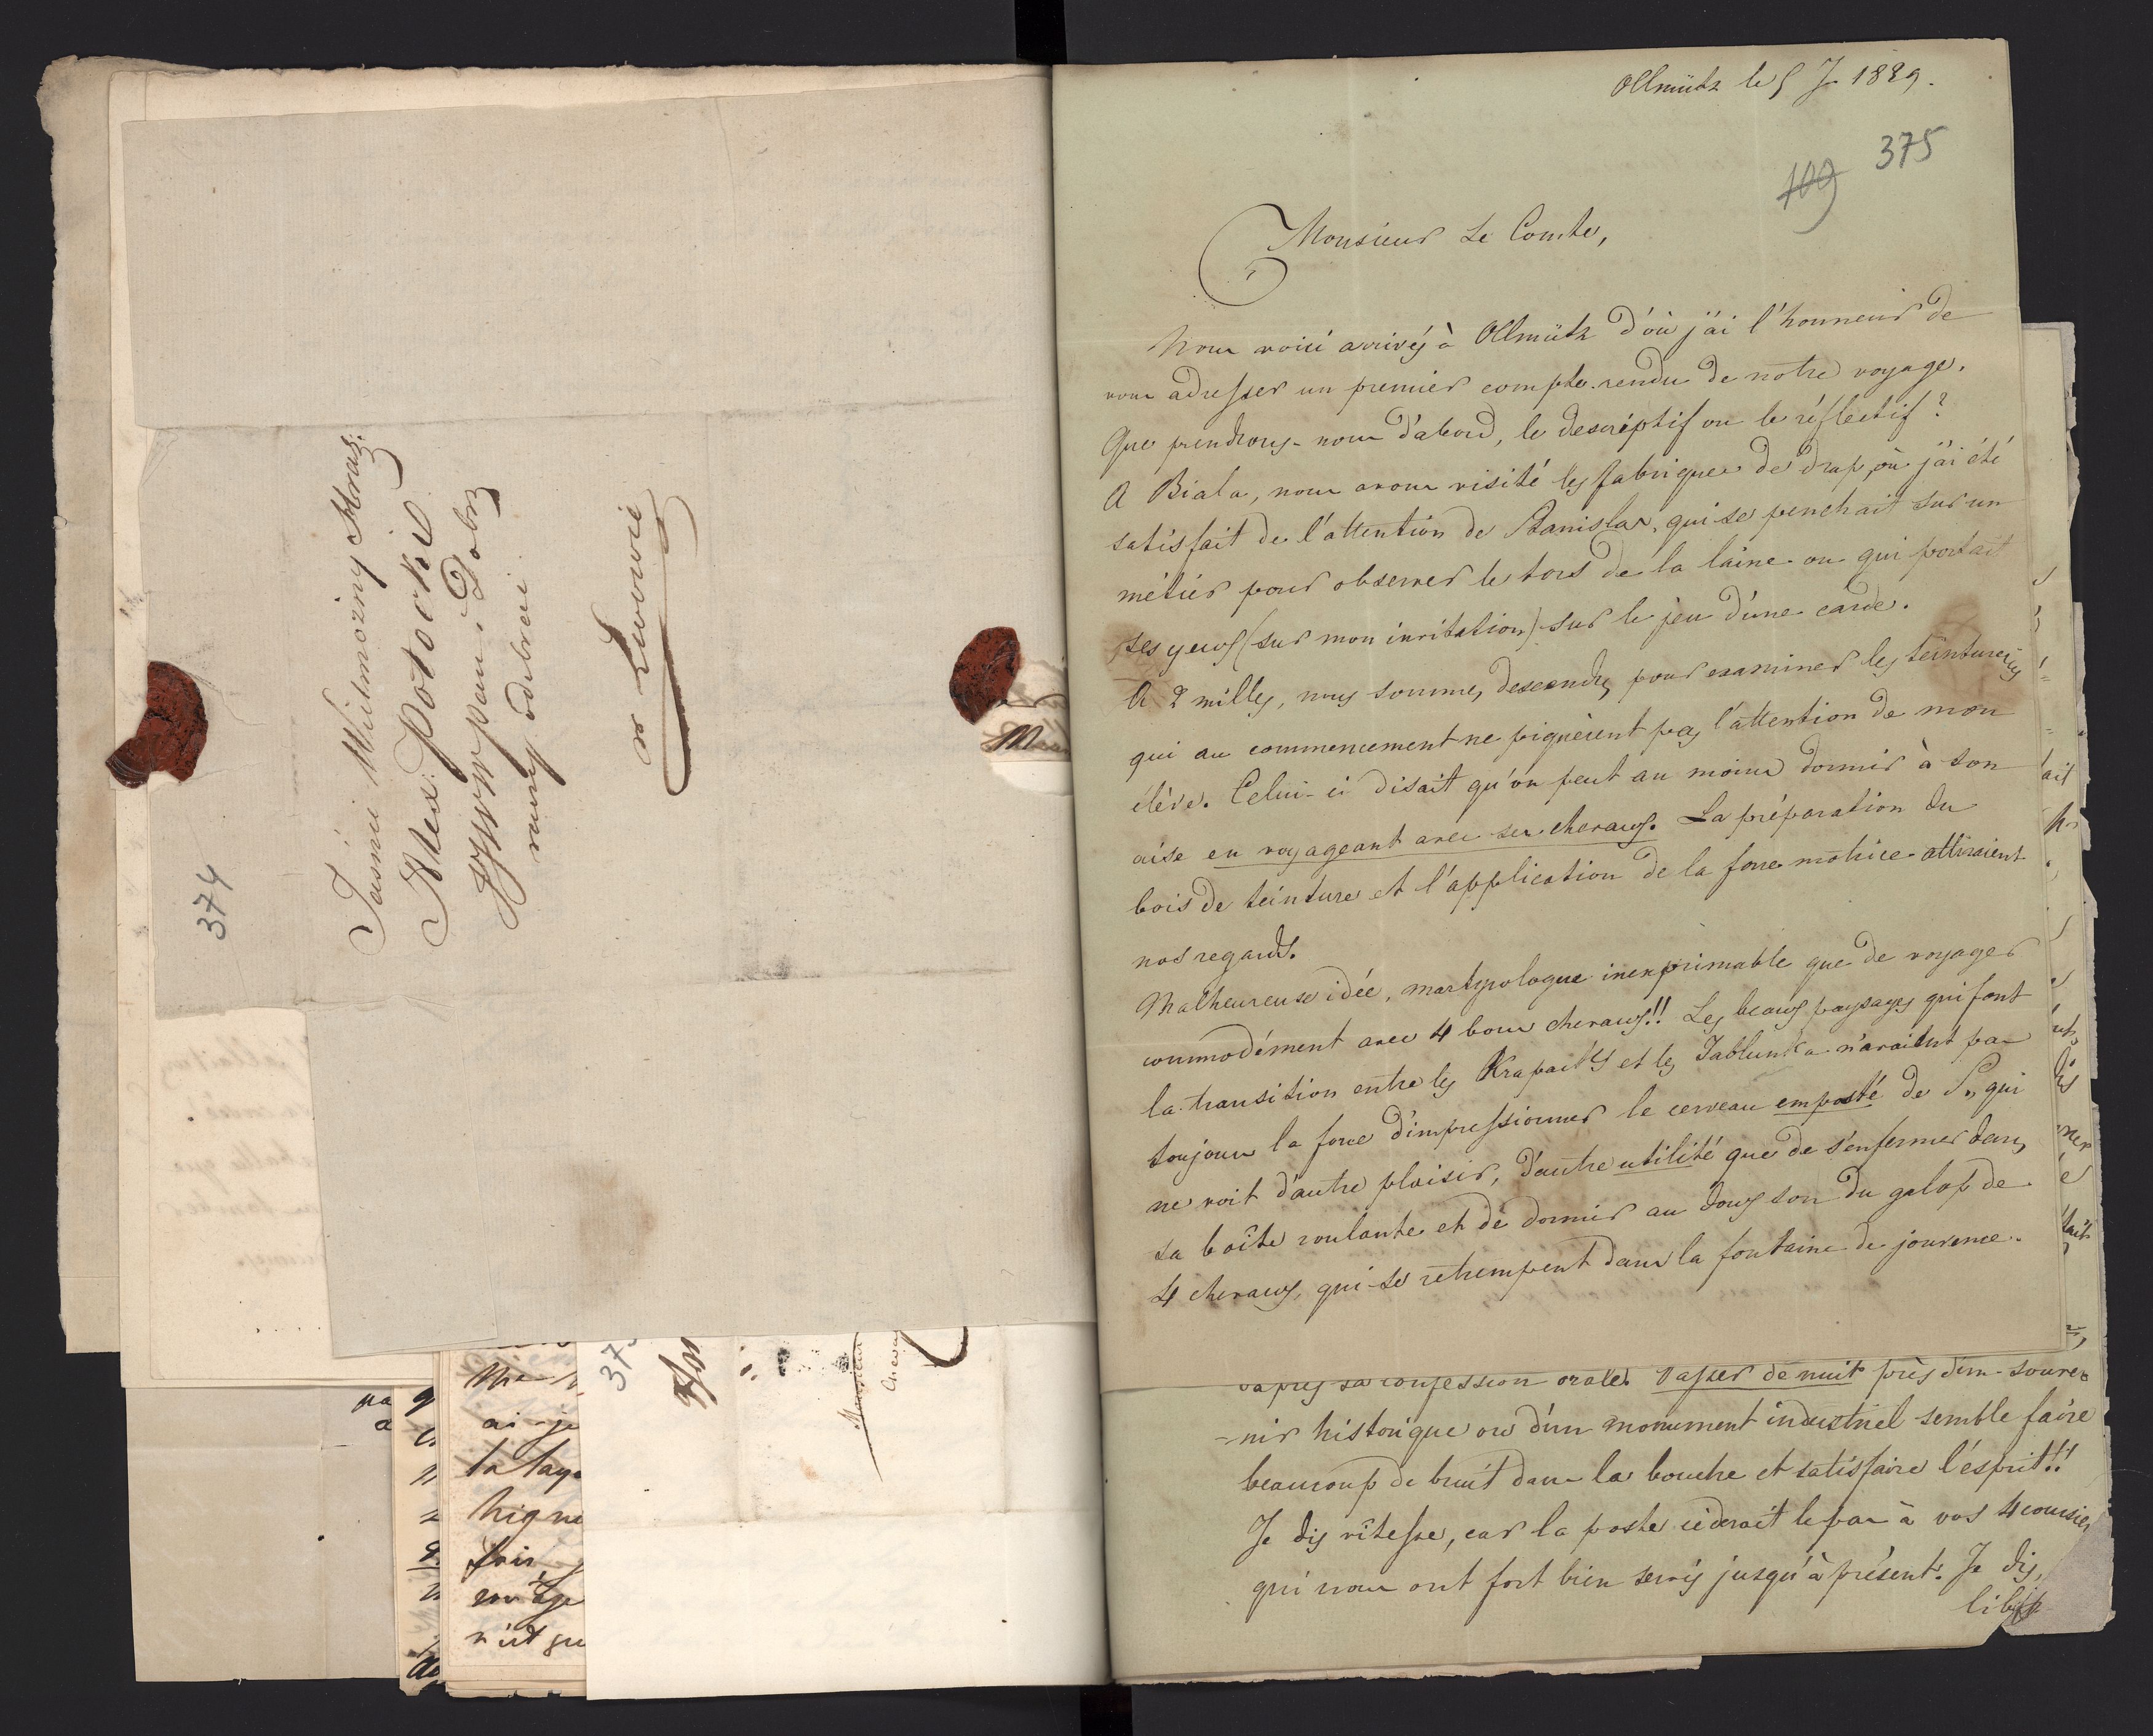 374
Jaśnie Wielmożny Hrabi
Alex: Potockie
Panu i Dobr
odebrać
w Lwowie
Ollmütz le 5 J. 1829.
109 375
Monsieur Le Comte,
Nous voici arrivés à Ollmütz d'où j'ai l'honneur de
vous adresser un premier compte-rendu de notre voyage.
Que prendrons-nous d'abord, le descriptif ou le réflectif?
A Biala, nous avons visité les fabriques de drap, où j'ai été
satisfait de l'attention de Stanislas, qui se penchait sur un
métier pour observer le tors de la laine ou qui portait
ses yeux (sur mon invitation) sur le jeu d'une carde.
A 2 milles, nous sommes descendus pour examiner les teintureries
qui au commencement ne piquèrent pas l'attention de mon
élève. Celui-ci disait qu'on peut au moins dormir à son
aise en voyageant avec ses chevaux. La préparation du
bois de teinture et l'application de la force motrice attiraient
nos regards.
Malheureuse idée, martyrologue inexprimable que de voyager
commodément avec 4 bons chevaux!! Les beaux paysages qui font
la transition entre les Krapacks et les Jablunka n'avaient pas
toujours la force d'impressionner le cerveau empâté de S., qui
ne voit d'autre plaisir, d'autre utilité que de s'enfermer dans
sa boîte roulante et de dormir au doux son du galop de
4 chevaux, qui se retrempent dans la fontaine de jouvence.
d'après sa confession orale. Passer de nuit près d'un souve-
-nir historique ou d'un monument industriel semble faire
beaucoup de bruit dans la bouche et satisfaire l'esprit!!
Je dis vîtesse, car la poste céderait le pas à vos 4 coursiers
qui nous ont fort bien servis jusqu'à présent. Je dis,